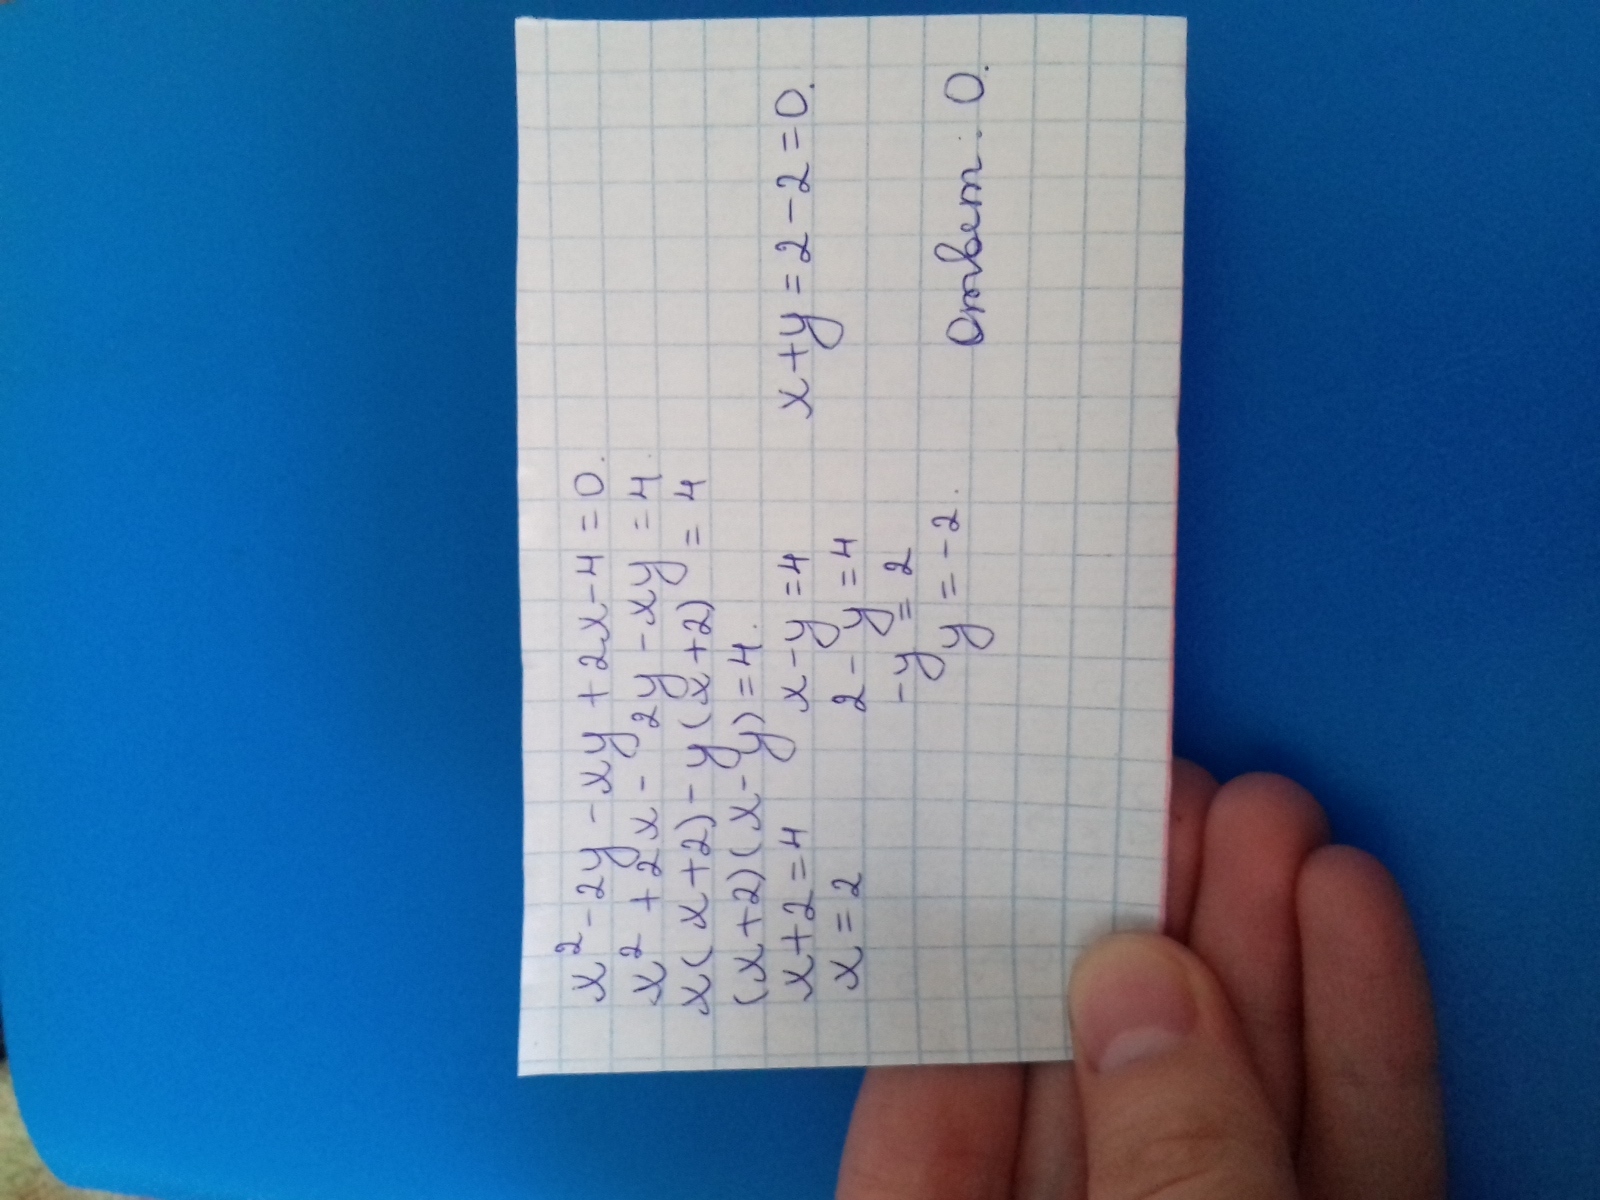 x² - 2y - xy + 2x - 4 = 0.
x² + 2x - 2y - xy = 4
x(x+2) - y(x+2) = 4
(x+2)(x-y) = 4.
x+2=4 x-y=4 x+y=2-2=0.
x=2 2-y=4
-y=2
y=-2.
Ответ: 0.